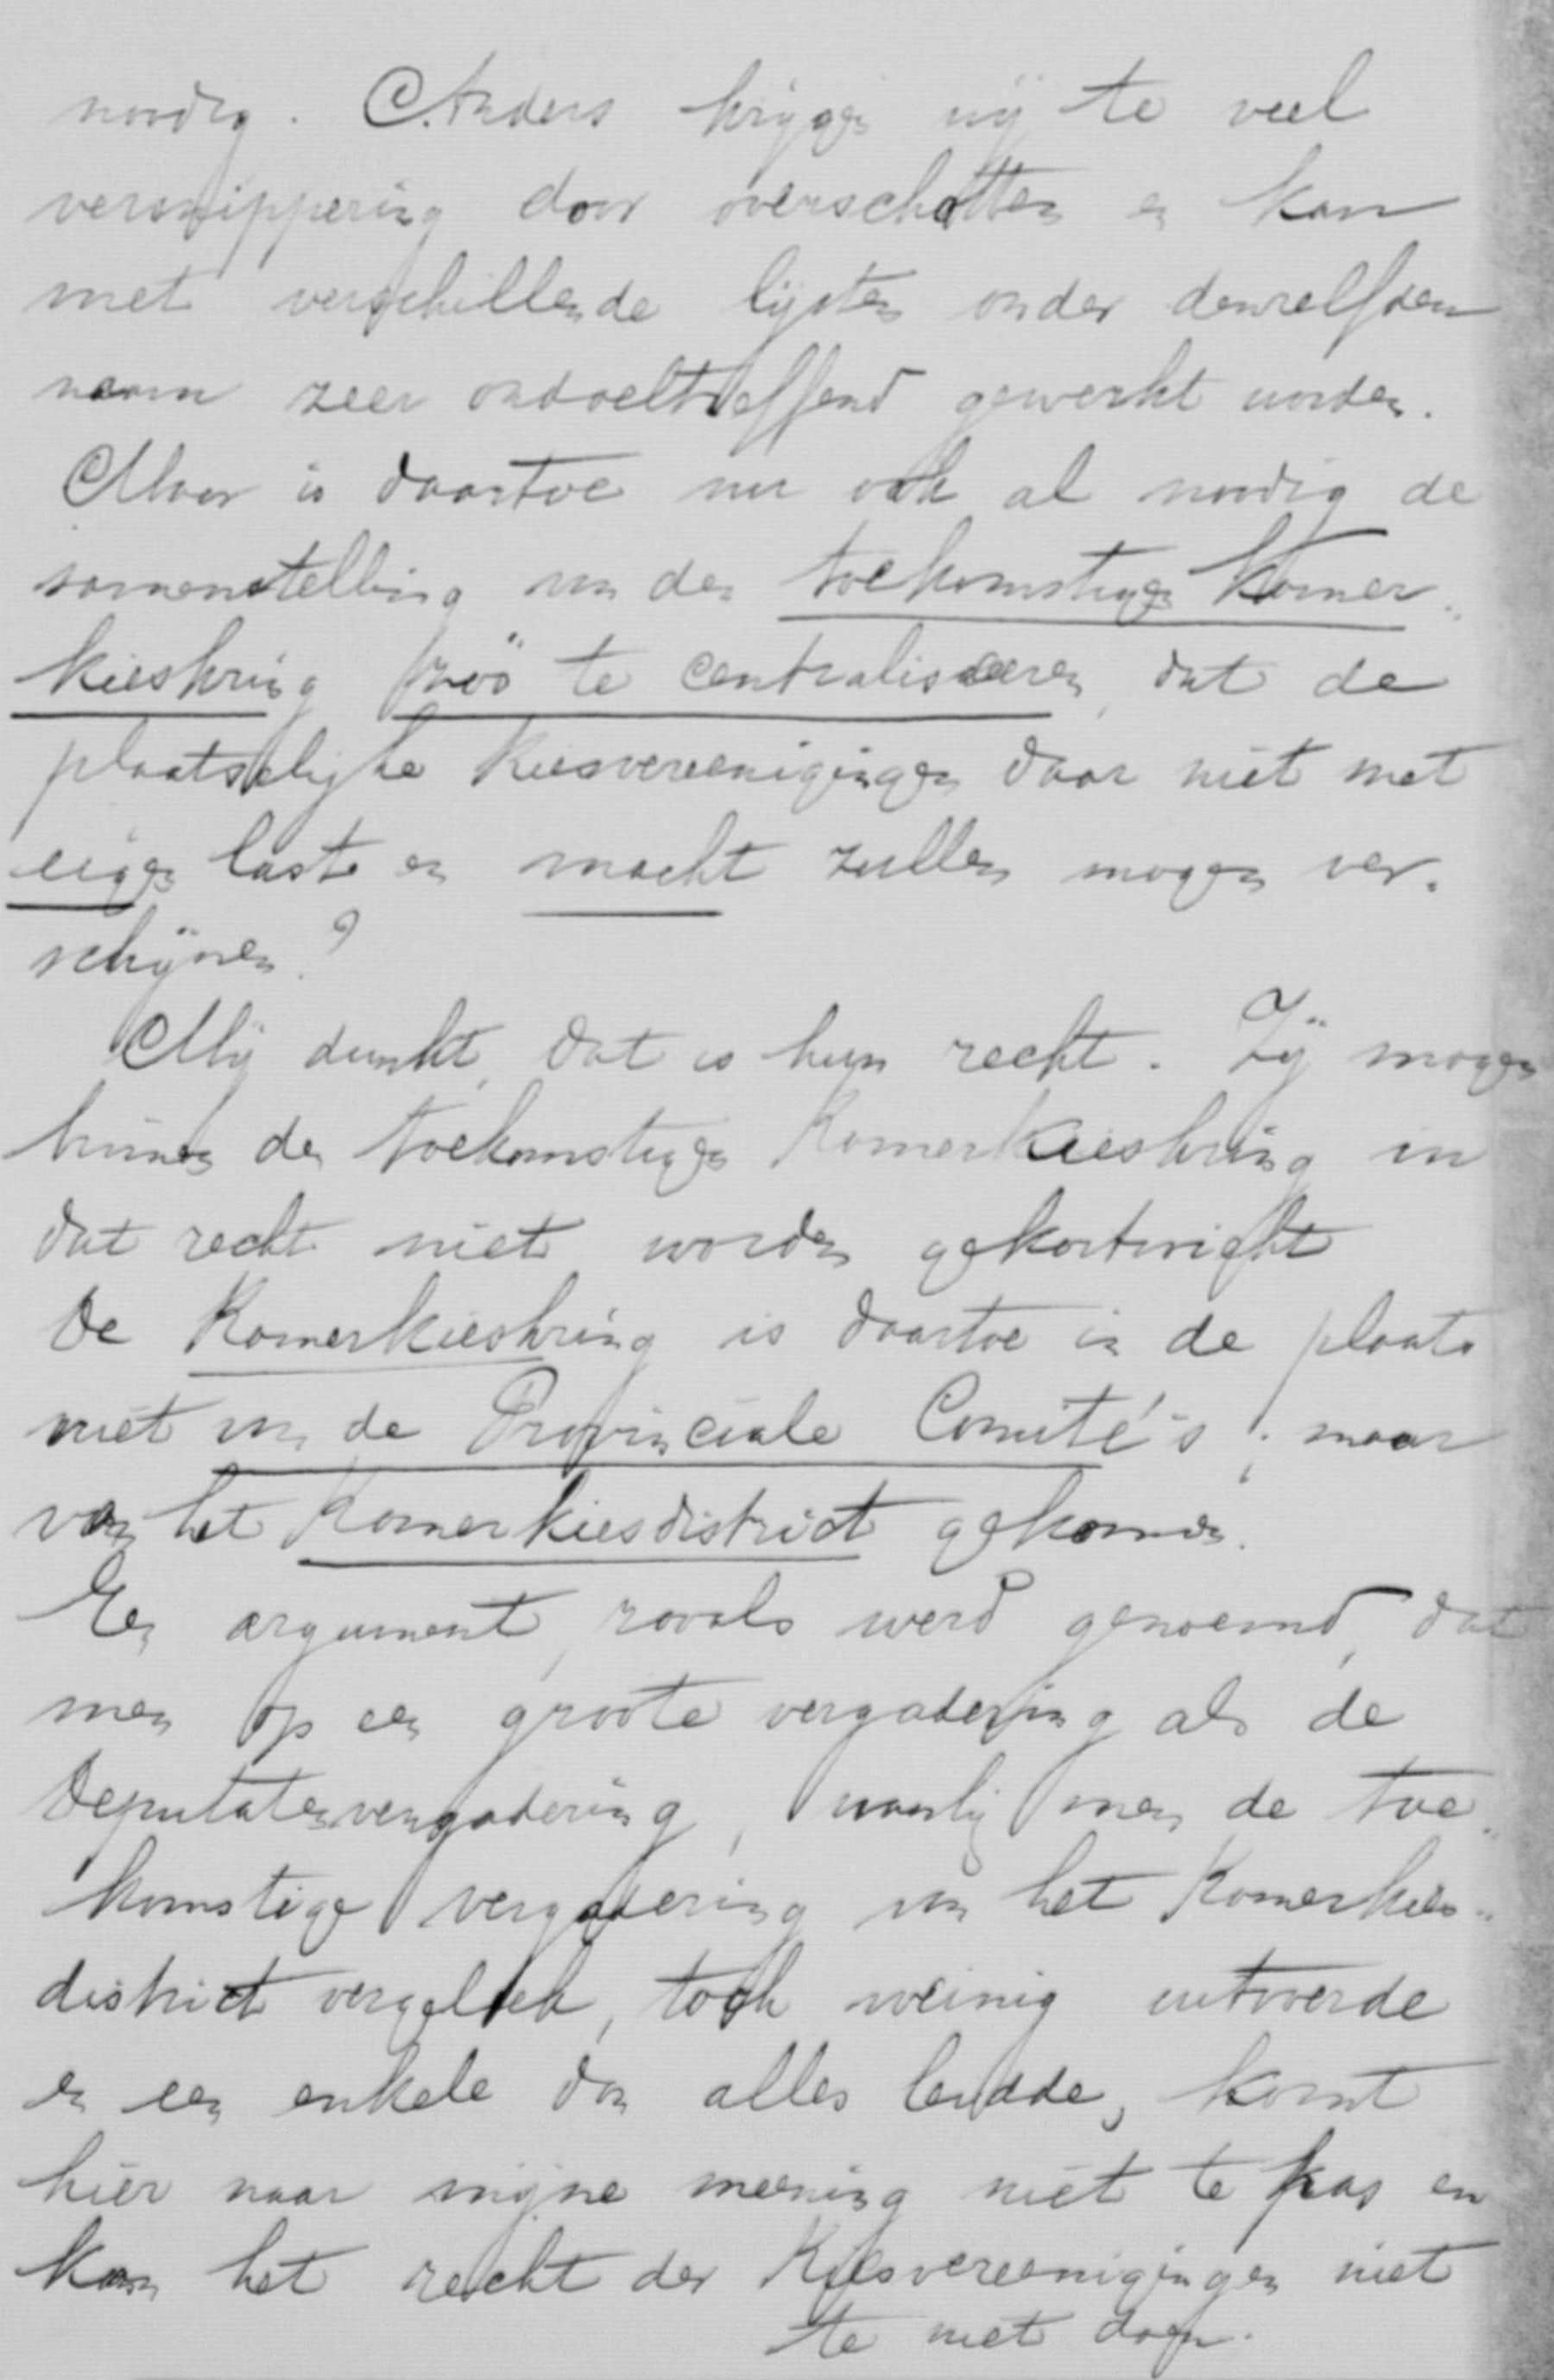 noodig. Anders krijgen wij te veel
versnippering door overschotten en kan
met verschillende lijsten onder denzelfden
naam zeer ondoeltreffend gewerkt worden.
Maar is daartoe nu ook al noodig de
samenstelling van den toekomstigen Kamer-
kieskring zóó te centraliseeren, dat de
plaatselijke Kiesvereenigingen daar niet met
eigen last en macht zullen mogen ver-
schijnen?
Mij dunkt, dat is hun recht. Zij mogen
binnen den toekomstigen Kamerkieskring in
dat recht niet worden gekortwiekt
De Kamerkieskring is daartoe in de plaats
niet van de Provinciale Comité's; maar
van het Kamerkiesdistrict gekomen.
Een argument, zooals werd genoemd, dat
men op een groote vergadering als de
Deputatenvergadering, waarbij men de toe-
komstige vergadering van het Kamerkies-
district vergeleek, toch weinig uitvoerde
en een enkele dan alles leidde, komt
hier naar mijne meening niet te pas en
kan het recht der Kiesvereenigingen niet
te niet doen.